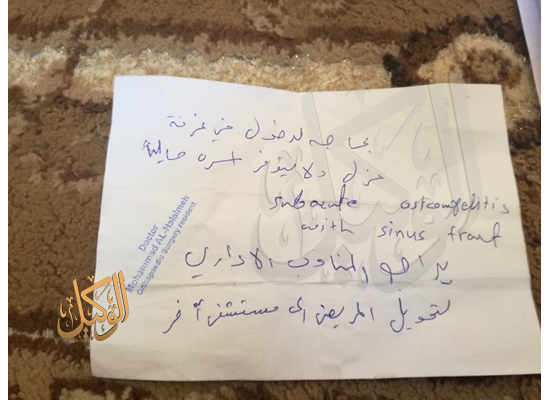 بحاجه لدخول في غرفة
عزل ولا يتوفر اسره حالياً
subacute osteomyelitis
with sinus tract
يراجع المناوب الاداري
لتحويل المريض الى مستشفى آخر
Doctor
Mohammad AL-Halalmeh
Orthopaedic Surgery resident
الوكيل
الوكيل